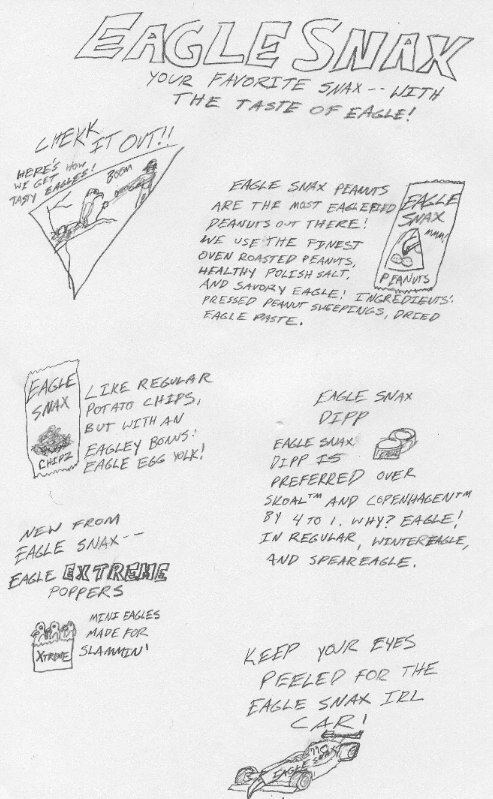 EAGLE SNAX
YOUR FAVORITE SNAX -- WITH
THE TASTE OF EAGLE!
CHEKK
IT OUT!!
HERE'S HOW
WE GET
TASTY EAGLES!
BOOM
EAGLE SNAX PEANUTS
ARE THE MOST EAGLEFIED
PEANUTS OUT THERE!
WE USE THE FINEST
OVEN ROASTED PEANUTS,
HEALTHY POLISH SALT,
AND SAVORY EAGLE! INGREDIENTS:
PRESSED PEANUT SWEEPINGS, DRIED
EAGLE PASTE.
EAGLE
SNAX
MMM!
PEANUTS
EAGLE
SNAX
CHIPZ
LIKE REGULAR
POTATO CHIPS,
BUT WITH AN
EAGLEY BONUS:
EAGLE EGG YOLK!
EAGLE SNAX
DIPP
EAGLE SNAX
DIPP IS
PREFERRED OVER
SKOAL™ AND COPENHAGEN™
BY 4 TO 1. WHY? EAGLE!
IN REGULAR, WINTEREAGLE,
AND SPEAREAGLE.
NEW FROM
EAGLE SNAX--
EAGLE EXTREME
POPPERS
XTREME
MINI EAGLES
MADE FOR
SLAMMIN'
KEEP YOUR EYES
PEELED FOR THE
EAGLE SNAX IRL
CAR!
EAGLE SNAX